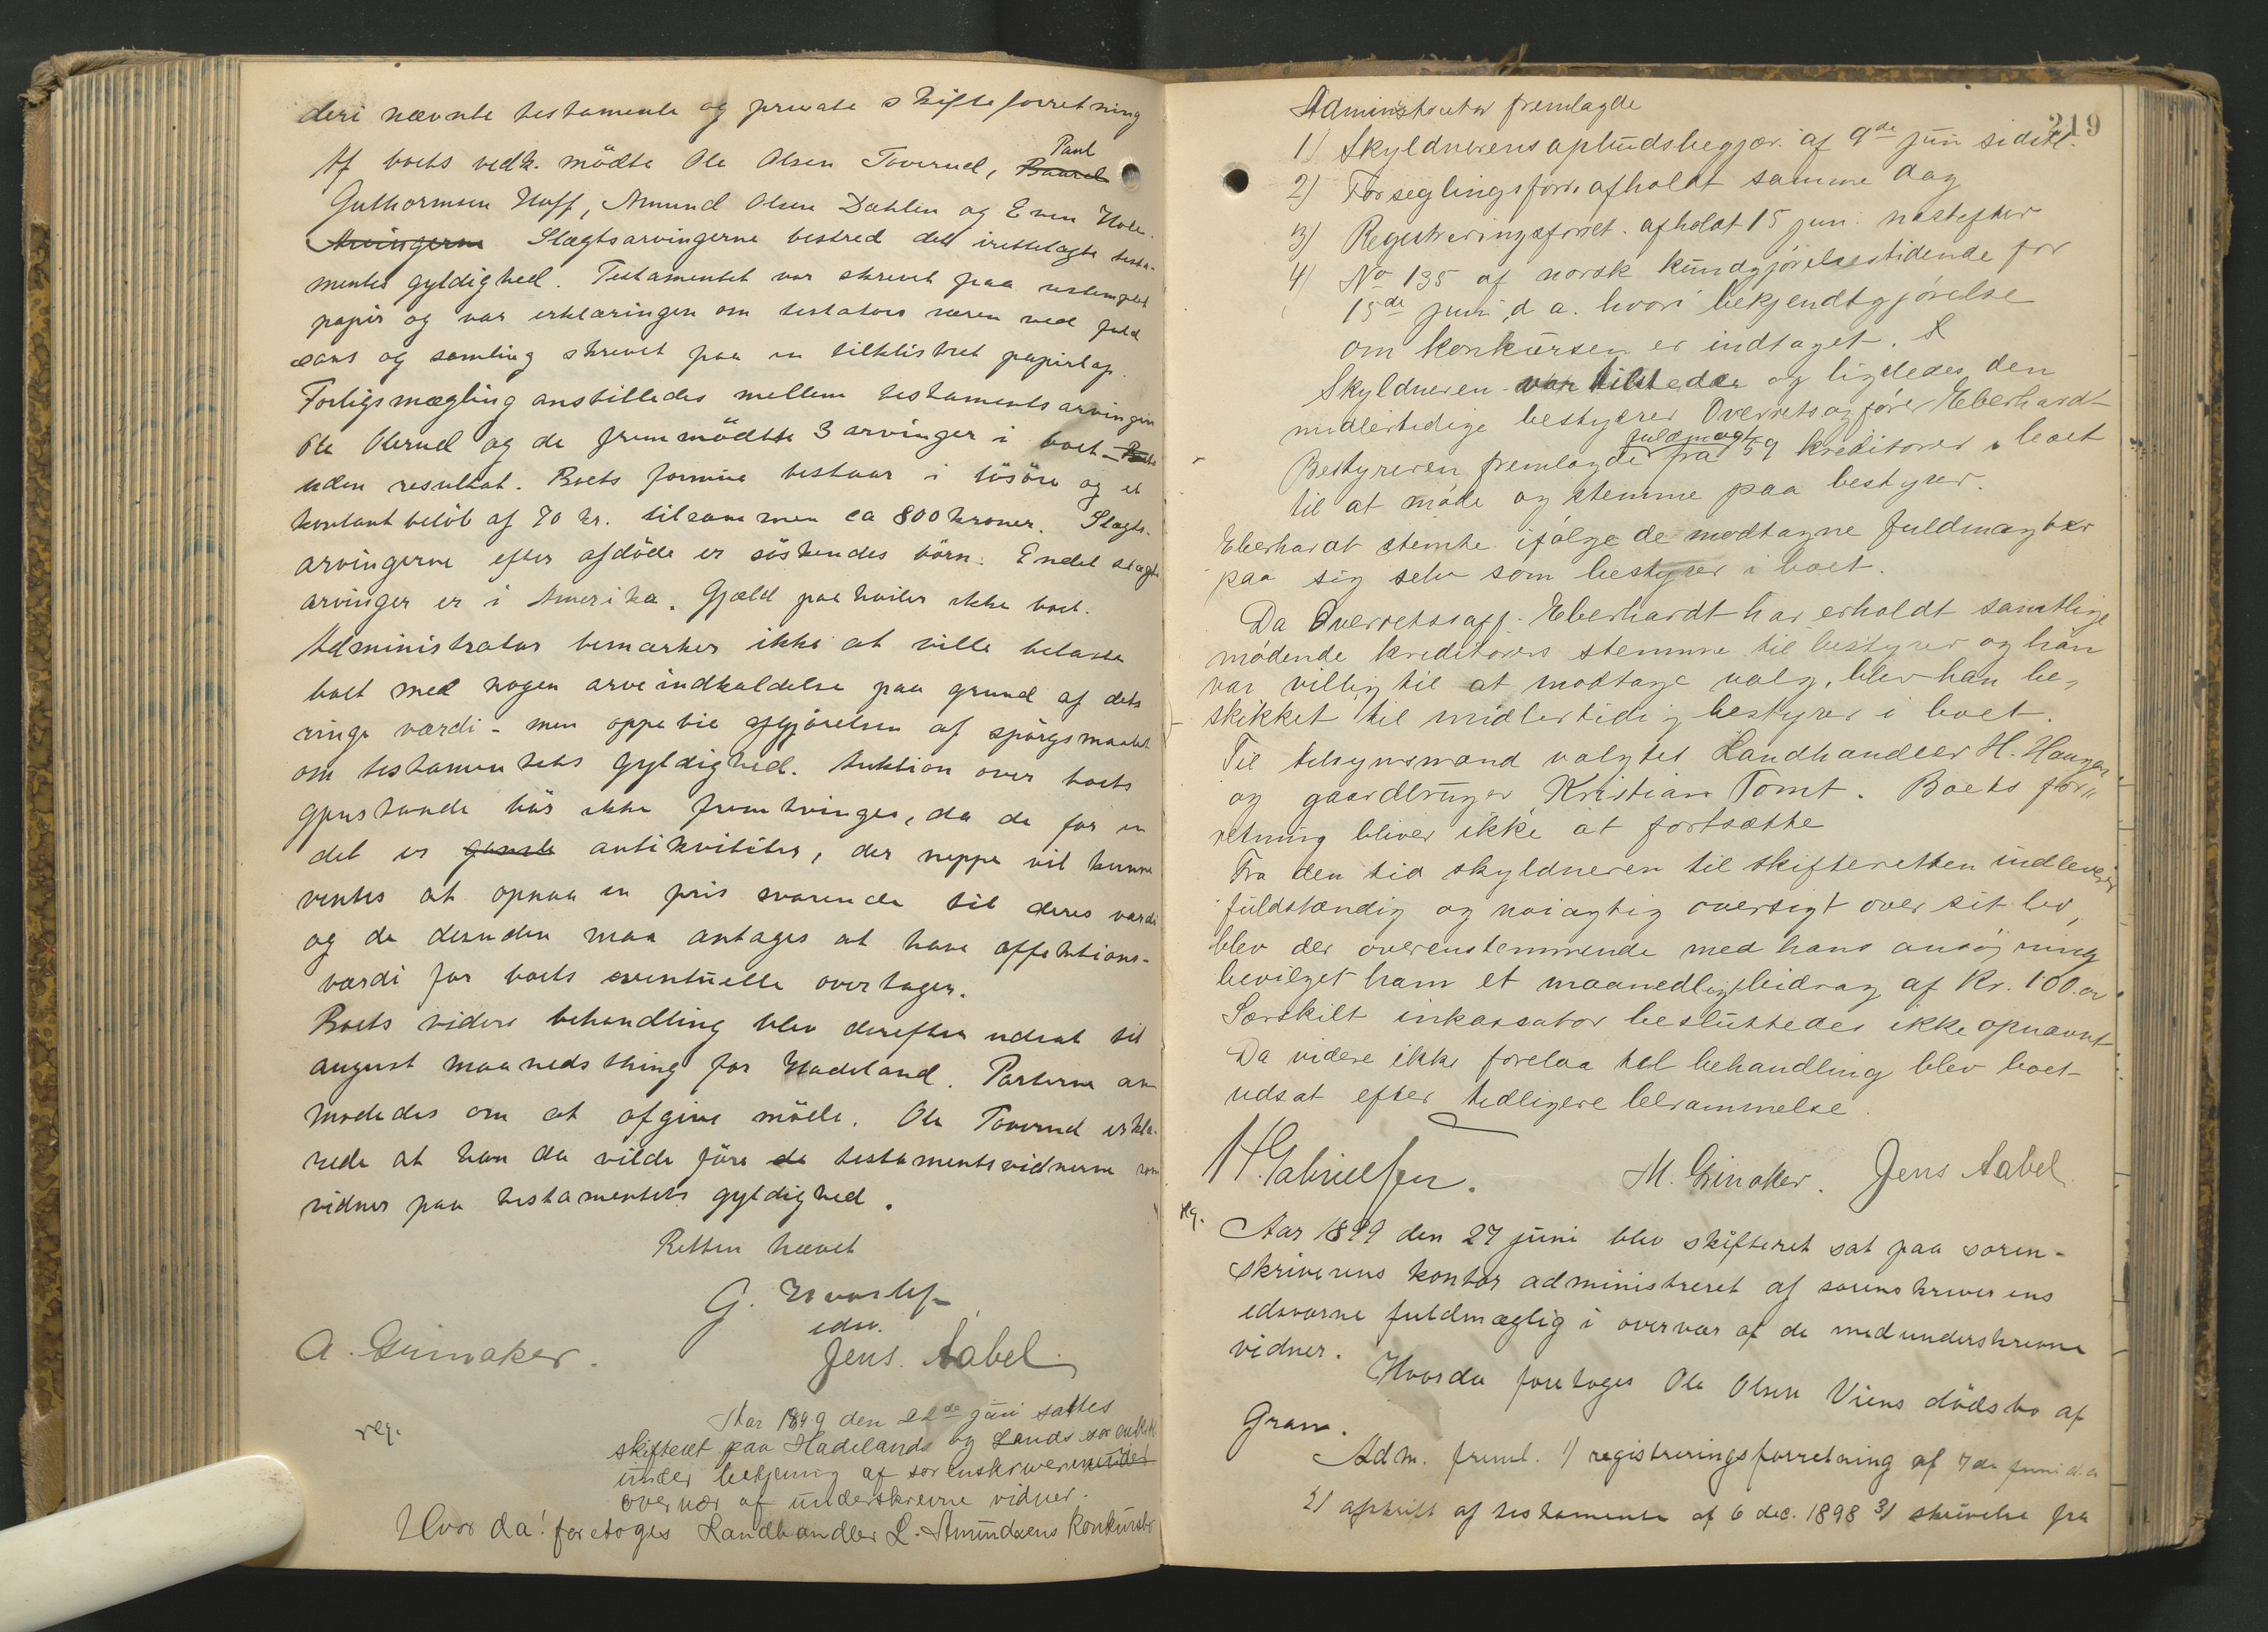 deri nævnte testamente og private skifteforretning
Af boets vedk. mödte Ole Olsen Toverud, Baard Paul
Guthormsen Hoff, Amund Olsen Dahlen og Even Hole.
Arvingerne Slægtsarvingerne bestred det irettelagte testa-
mentes gyldighed. Testamentet var skrevet paa ustemplet
papir og var erklæringen om testators væren ved fuld
sans og samling skrevet paa en tilklistret papirlap.
Forligsmægling anstilledes mellem testamentsarvingen
Ole og de fremmödte 3 arvinger i boet
uden resultat. Boets formue bestaar i lösöre og et
kontant belöb af 70 kr. tilsammen ca 800 kroner. Slægts-
arvingerne efter afdöde er söskendes börn. Endel slægts
arvinger er i Amerika. Gjæld paahviler ikke boet.
Administrator bemærker ikke at ville belaste
boet med nogen arveindkaldelse paa grund af dets
ringe værdi - men oppebie afgjörelsen af spörgsmaalet
om testamentets gyldighed. Auktion over boets
gjenstande bör ikke fremtvinges, da de for en
del er gamle antikviteter, der neppe vil kunne
ventes at opnaa en pris svarende til deres værdi
og de desuden maa antages at have affektions-
værdi for boets eventuelle overtager.
Boets videre behandling blev derefter udsat til
august maanedsthing for Hadeland. Parterne an
modedes om at afgive möde. Ole Toverud erklæ-
rede at han da vilde före de testamentsvidnerne som
vidner paa testamentets gyldighed.
Retten hævet
G.
edsv.
A. Grinaker. Jens Aabel.
reg. Aar 1899 den 22de juni sattes
skifteret paa Hadelands og Lands
under betjening af sorenskriveren under
overvær af underskrevne vidner.
Hvorda! foretoges Landhandler L. Amundsens konkursbo
219
Administrator fremlagde
1) Skyldnerens opbudsbegjær. af 9de juni sidstl.
2) Forseglingsforr. afholdt samme dag
3) Registreringsforret. afholdt 15 juni næstefter
4) No 135 af norsk kundgjørelsestidende for
15de juni d. a. hvori bekjendtgjørelse
om konkursen er indtaget.
Skyldneren var tilstede og ligeledes den
midlertidige bestyrer Overretssagfører Eberhardt
Bestyreren fremlagde fuldmagt fra 59 kreditorer i boet
til at møde og stemme paa bestyrer.
Eberhardt stemte ifølge de modtagne fuldmagter
paa sig selv som bestyrer i boet.
Da Overretssagf. Eberhardt har erholdt samtlige
mødende kreditorers stemme til bestyrer og han
var villig til at modtage valg, blev han be-
skikket til midlertidig bestyrer i boet.
Til tilsynsmænd valgtes Landhandler H. Haugen
og gaardbruger Kristian Tomt. Boets for-
retning bliver ikke at fortsætte
Fra den tid skyldneren til skifteretten indleverer
fuldstændig og nøiagtig oversigt over sit bo,
blev der overenstemmende med hans ansøgning
bevilget ham et maanedligt bidrag af Kr. 100.00
Særskilt inkassator besluttedes ikke opnævnt
Da videre ikke forelaa til behandling blev boet
udsat efter tidligere berammelse.
H. Gabrielsen. M. Grinaker. Jens Aabel.
reg. Aar 1899 den 27 juni blev skifteret sat paa soren-
skriverens kontor administreret af sorenskriverens
edsvorne fuldmægtig i overvær af de medunderskrevne
vidner.
Hvorda foretoges Ole Olsen Viens dödsbo af
Gran.
Adm. freml. 1) registreringsforretning af 7de juni d.a
2) afskrift af testamente af 6 dec. 1898 3) skrivelse fra